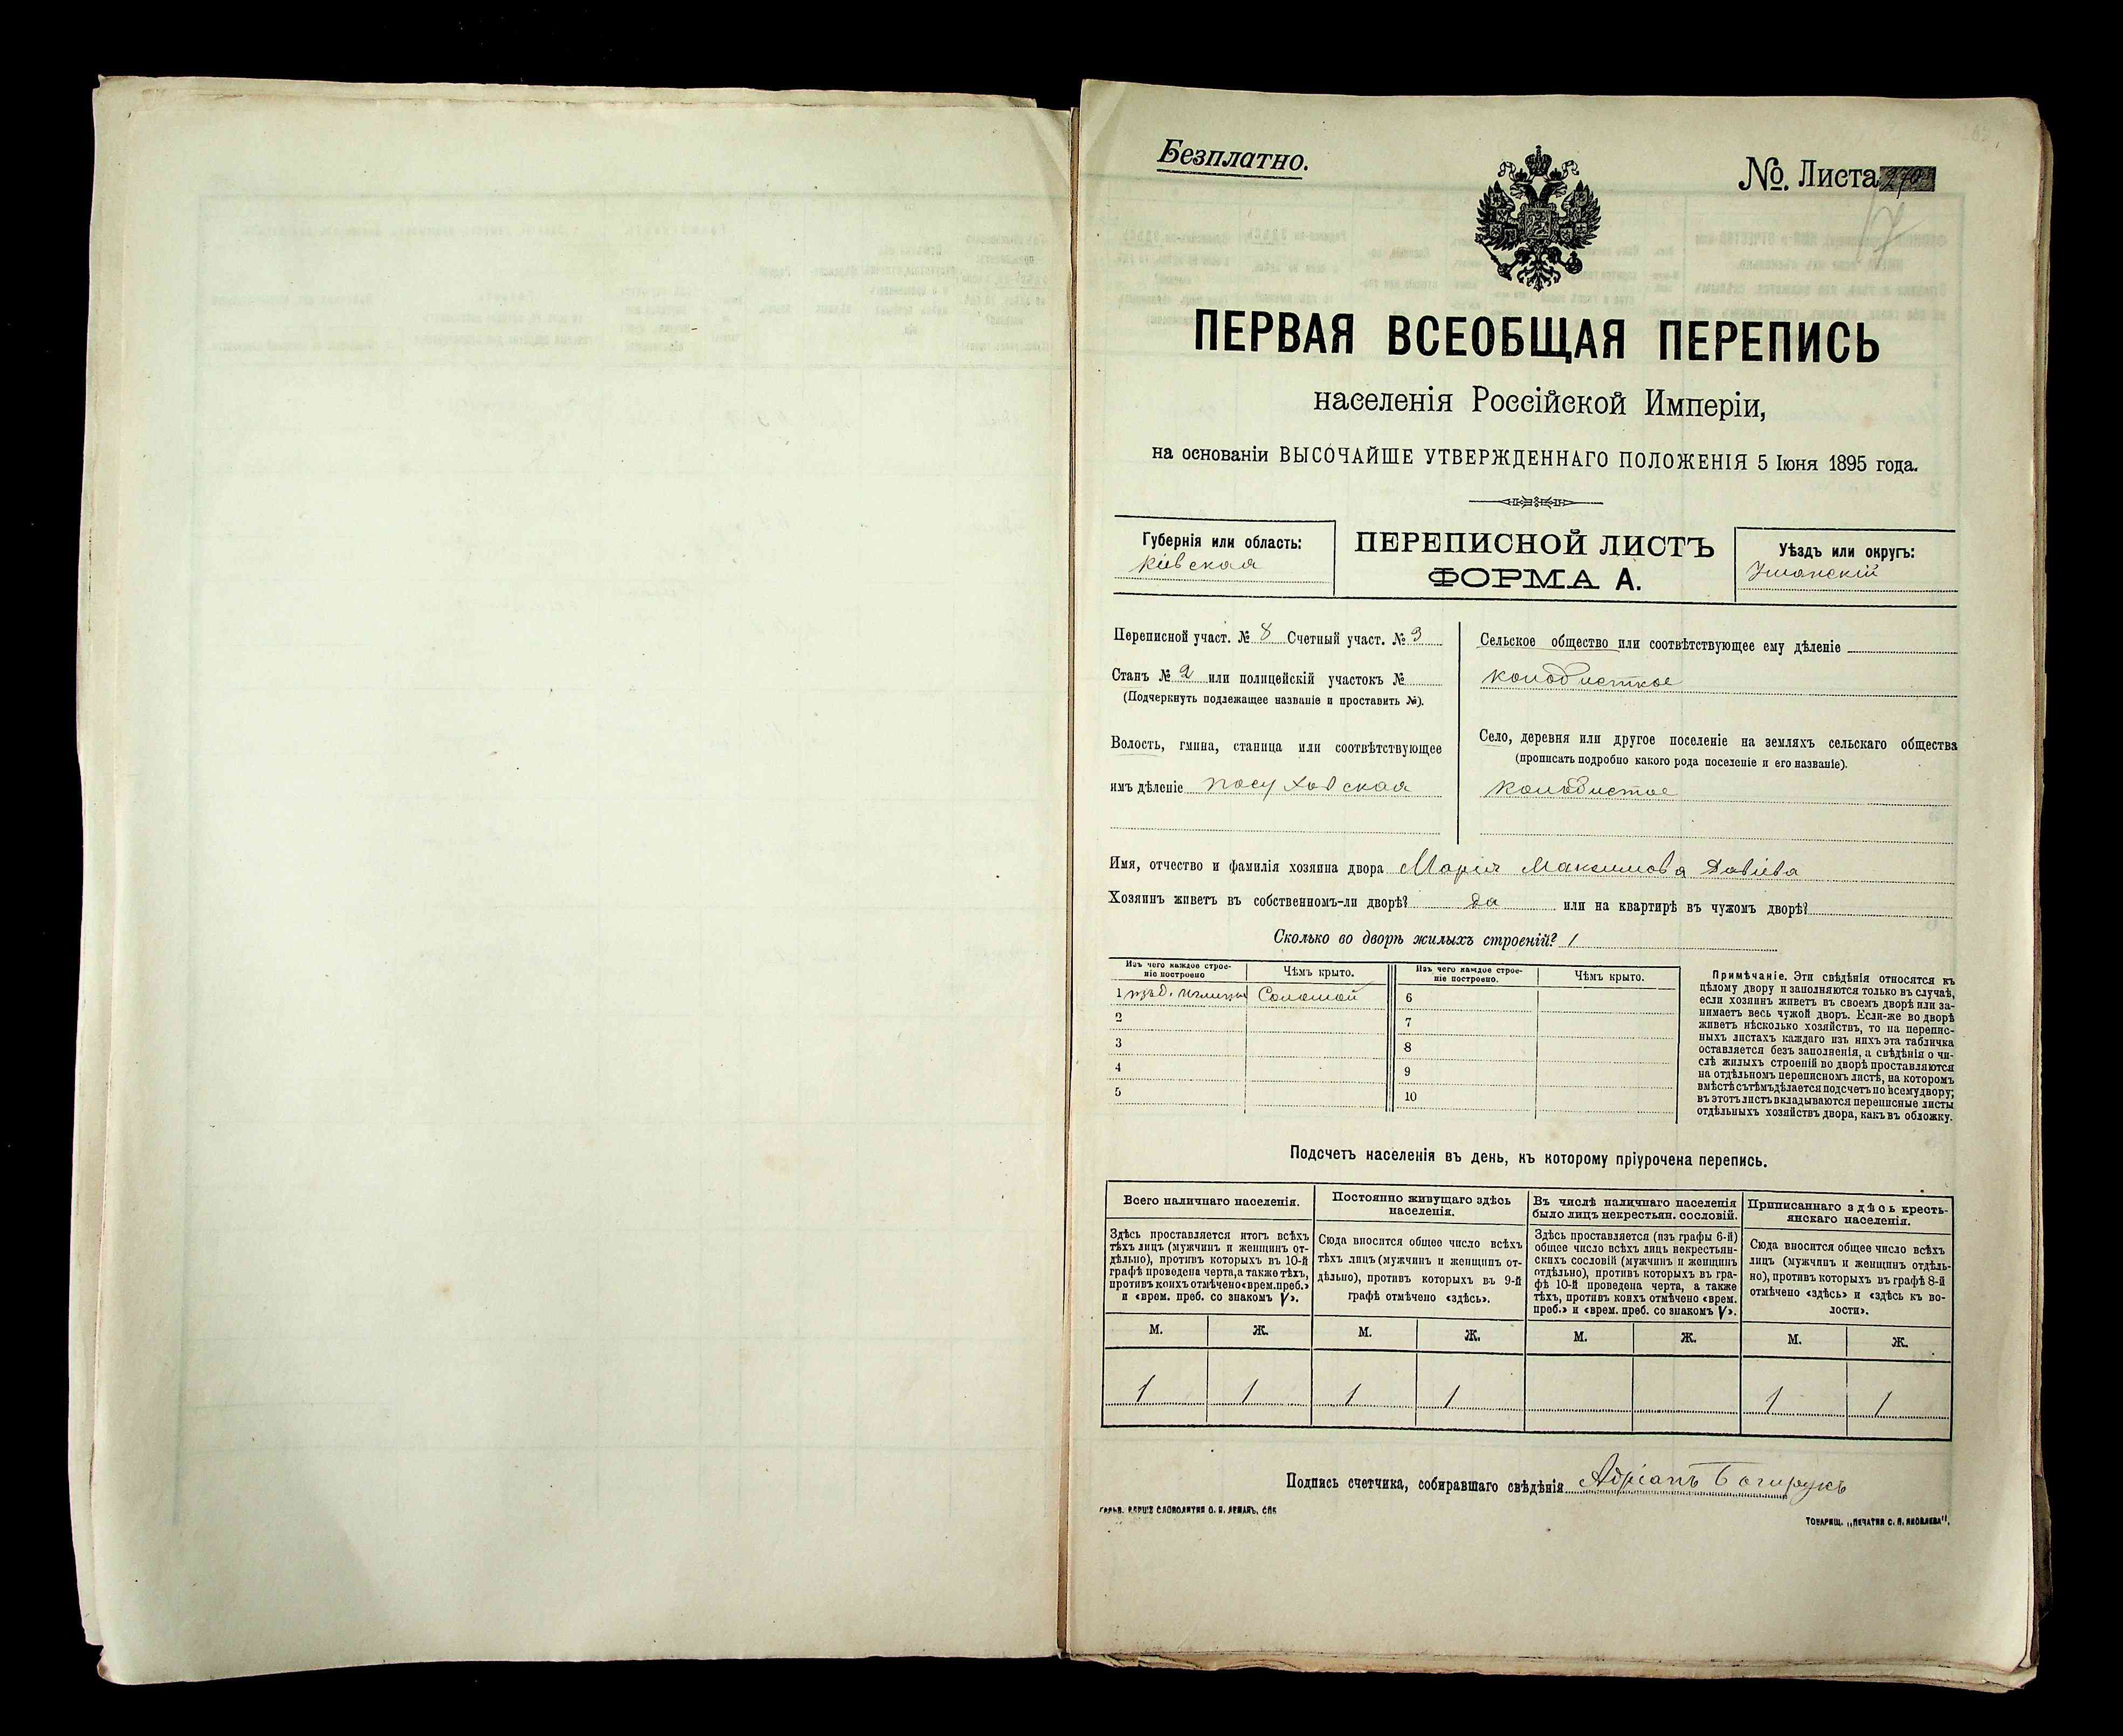 Безплатно.
№. Листа 270
ПЕРВАЯ ВСЕОБЩАЯ ПЕРЕПИСЬ
населенія Россійской Имперіи,
на основаніи ВЫСОЧАЙШЕ УТВЕРЖДЕННАГО ПОЛОЖЕНІЯ 5 Іюня 1895 года.
Губернія или область:
Кіевская
ПЕРЕПИСНОЙ ЛИСТЪ
ФОРМА А.
Уѣздъ или округъ:
Уманскій
Переписной участ. № 8 Счетный участ. № 3
Станъ № 2 или полицейскій участокъ №
(Подчеркнуть подлежащее названіе и проставить №).
Волость, гмина, станица или соотвѣтствующее
имъ дѣленіе посуховская
Сельское общество или соотвѣтствующее ему дѣленіе
Село, деревня или другое поселеніе на земляхъ сельскаго общества
(прописать подробно какого рода поселеніе и его названіе).
колодистое
Имя, отчество и фамилія хозяина двора Марія Максимова
Хозяинъ живетъ въ собственномъ-ли дворѣ? да или на квартирѣ въ чужомъ дворѣ?
Сколько во дворѣ жилыхъ строеній? 1
Изъ чего каждое строе-
ніе построено
Чѣмъ крыто.
Изъ чего каждое строе-
ніе построено.
Чѣмъ крыто.
1 Соломой
2
3
4
5
6
7
8
9
10
Примѣчаніе. Эти свѣдѣнія относятся къ
цѣлому двору и заполняются только въ случаѣ,
если хозяинъ живетъ въ своемъ дворѣ или за-
нимаетъ весь чужой дворъ. Если-же во дворѣ
живетъ нѣсколько хозяйствъ, то на перепис-
ныхъ листахъ каждаго изъ нихъ эта табличка
оставляется безъ заполненія, а свѣдѣнія о чи-
слѣ жилыхъ строеній во дворѣ проставляются
на отдѣльномъ переписномъ листѣ, на которомъ
вмѣстѣ съ тѣмъ дѣлается подсчетъ по всему двору;
въ этотъ листъ вкладываются переписные листы
отдѣльныхъ хозяйствъ двора, какъ въ обложку.
Подсчетъ населенія въ день, къ которому пріурочена перепись.
Всего наличнаго населенія.
Постоянно живущаго здѣсь
населенія.
Въ числѣ наличнаго населенія
было лицъ некрестьян. сословій.
Приписаннаго здѣсь кресть-
янскаго населенія.
Здѣсь проставляется итогъ всѣхъ
тѣхъ лицъ (мужчинъ и женщинъ от-
дѣльно), противъ которыхъ въ 10-й
графѣ проведена черта, а также тѣхъ,
противъ коихъ отмѣчено «врем. преб.»
и «врем. преб. со знакомъ V».
Сюда вносится общее число всѣхъ
тѣхъ лицъ (мужчинъ и женщинъ от-
дѣльно), противъ которыхъ въ 9-й
графѣ отмѣчено «здѣсь».
Здѣсь проставляется (изъ графы 6-й)
общее число всѣхъ лицъ некрестьян-
скихъ сословій (мужчинъ и женщинъ
отдѣльно), противъ которыхъ въ гра-
фѣ 10-й проведена черта, а также
тѣхъ, противъ коихъ отмѣчено «врем.
преб.» и «врем. преб. со знакомъ V».
Сюда вносится общее число всѣхъ
лицъ (мужчинъ и женщинъ отдѣль-
но), противъ которыхъ въ графѣ 8-й
отмѣчено «здѣсь» и «здѣсь къ во-
лости».
М. Ж. М. Ж. М. Ж. М. Ж.
1 1 1 1 1 1
Подпись счетчика, собиравшаго свѣдѣнія Адріанъ
ТОВАРИЩ. „ПЕЧАТНЯ С. П. ЯКОВЛЕВА".